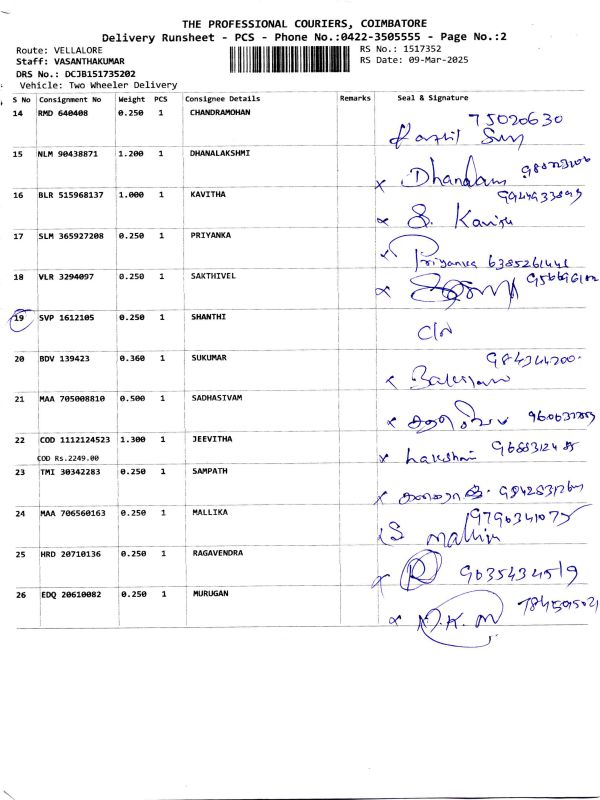 THE PROFESSIONAL COURIERS, COIMBATORE
Delivery Runsheet - PCS - Phone No.:0422-3505555 - Page No.:2
Route: VELLALORE RS No.: 1517352
Staff: VASANTHAKUMAR RS Date: 09-Mar-2025
DRS No.: DCJB151735202
Vehicle: Two Wheeler Delivery
S No Consignment No Weight PCS Consignee Details Remarks Seal & Signature
14 RMD 640408 0.250 1 CHANDRAMOHAN 75020630
15 NLM 90438871 1.200 1 DHANALAKSHMI Dhanalam
16 BLR 515968137 1.000 1 KAVITHA S. Kavi
17 SLM 365927208 0.250 1 PRIYANKA Priyanka 6385261441
18 VLR 3294097 0.250 1 SAKTHIVEL
19 SVP 1612105 0.250 1 SHANTHI C/N
20 BDV 139423 0.360 1 SUKUMAR
21 MAA 705008810 0.500 1 SADHASIVAM
22 COD 1112124523 1.300 1 JEEVITHA
COD Rs.2249.00
23 TMI 30342283 0.250 1 SAMPATH
24 MAA 706560163 0.250 1 MALLIKA S mallika
25 HRD 20710136 0.250 1 RAGAVENDRA R 9635434519
26 EDQ 20610082 0.250 1 MURUGAN N.K.M